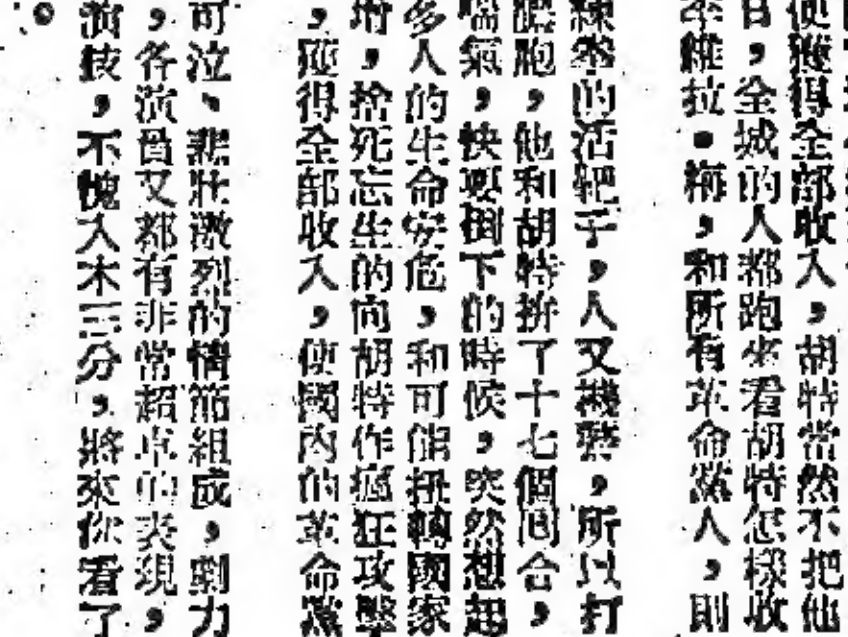 便獲得全部收入，胡特當然不把他
日，全城的人都跑來看胡特怎樣收
維拉・梅，和所有革命黨人，則
練拳的活靶子，人又機警，所以打
他和胡特拚了十七個回合，
喘氣，快要倒下的時候，突然想起
多人的生命安危，和可能扭轉國家
增，捨死忘生的向胡特作瘋狂攻擊
，獲得全部收入，使國內的革命黨
可泣、悲壯激烈的情節組成，劇力
，各演員又都有非常超卓的表現，
演技，不愧入木三分，將來你看了
。